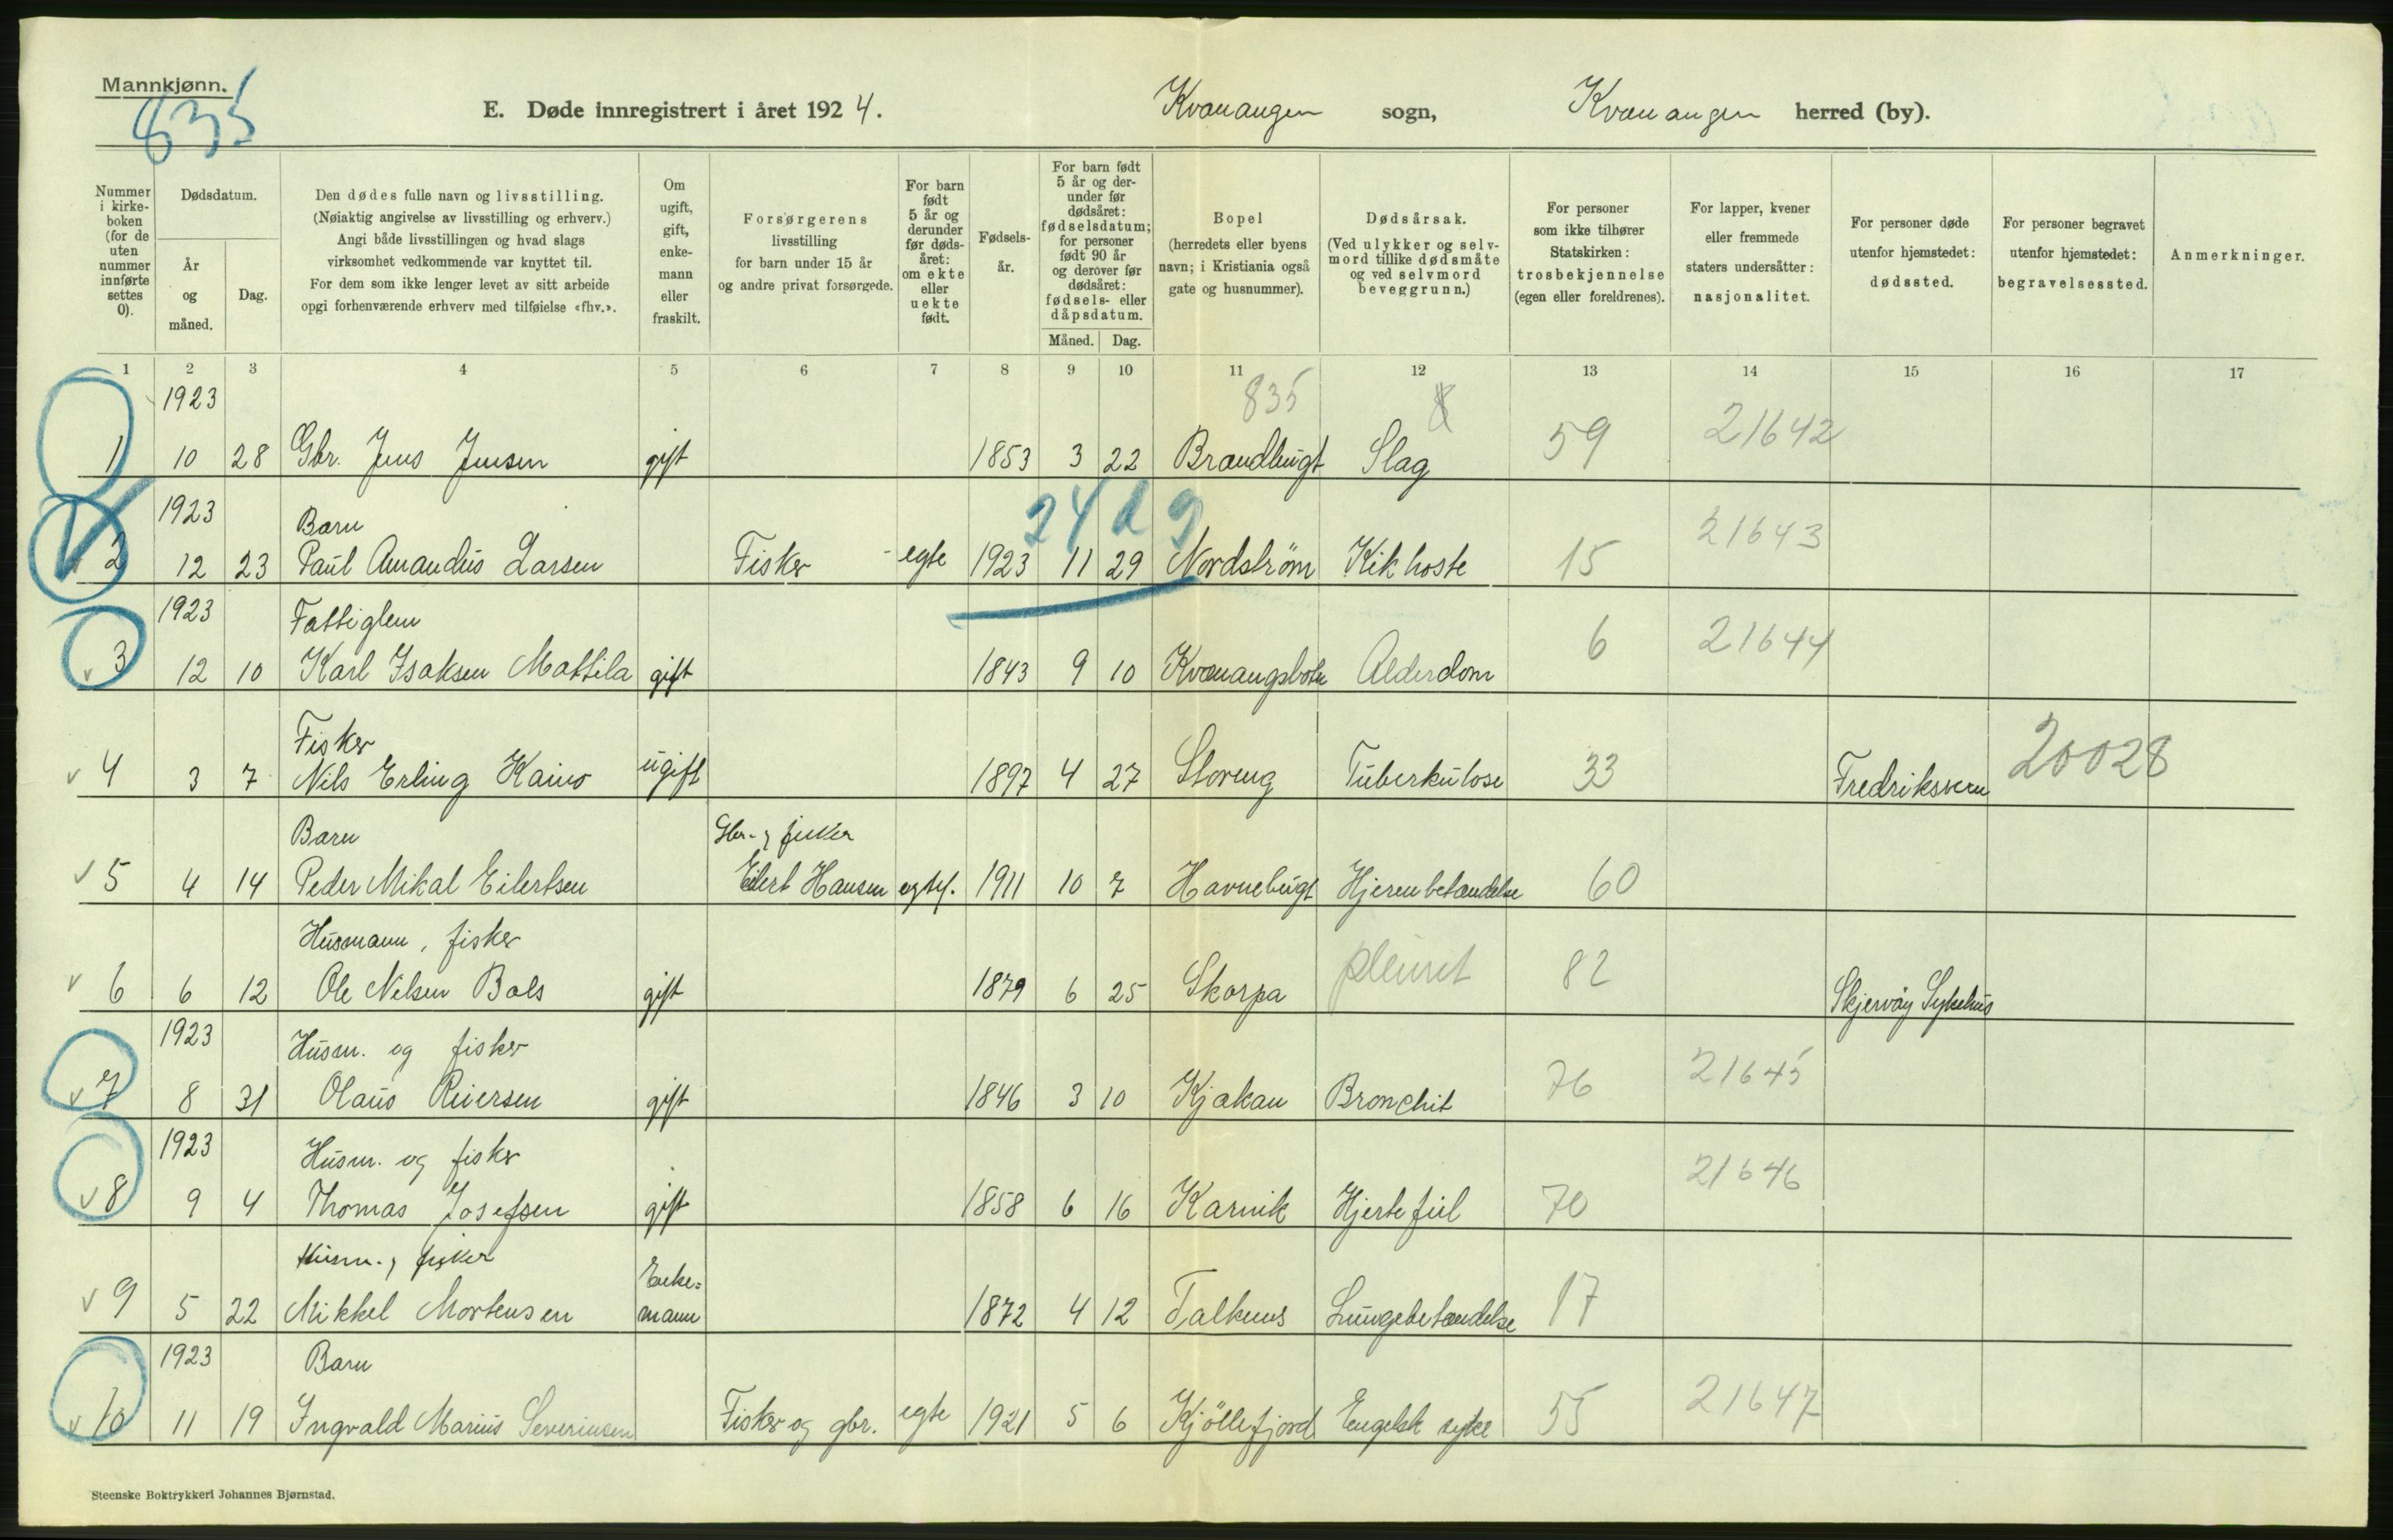 Mannkjønn.
835
E. Døde innregistrert i året 1924. Kvænangen sogn, Kvænangen herred (by).
Nummer i kirke-boken (for de uten nummer innførte settes 0).
Dødsdatum.
År og måned.
Dag.
Den dødes fulle navn og livsstilling.
(Nøiaktig angivelse av livsstilling og erhverv.)
Angi både livsstillingen og hvad slags
virksomhet vedkommende var knyttet til.
For dem som ikke lenger levet av sitt arbeide
opgi forhenværende erhverv med tilføielse «fhv.».
Om ugift, gift, enke-mann eller fraskilt.
Forsørgerens
livsstilling
for barn under 15 år
og andre privat forsørgede.
For barn født 5 år og derunder før døds-året: om ekte eller uekte født.
Fødsels-år.
For barn født 5 år og der-under før dødsåret: fødselsdatum; for personer født 90 år og derover før dødsåret: fødsels- eller dåpsdatum.
Måned. Dag.
Bopel
(herredets eller byens
navn; i Kristiania også
gate og husnummer).
Dødsårsak.
(Ved ulykker og selv-
mord tillike dødsmåte
og ved selvmord
beveggrunn.)
For personer
som ikke tilhører
Statskirken:
trosbekjennelse
(egen eller foreldrenes).
For lapper, kvener
eller fremmede
staters undersåtter:
nasjonalitet.
For personer døde
utenfor hjemstedet:
dødssted.
For personer begravet
utenfor hjemstedet:
begravelsessted.
Anmerkninger.
1 2 3 4 5 6 7 8 9 10 11 12 13 14 15 16 17
1923 835 8
1 10 28 Gbr. Jens Jensen gift 1853 3 22 Brandbugt Slag 59 21642
1923 Barn 24 d 9
2 12 23 Paul Amandus Larsen Fisker - egte 1923 11 29 Nordstrøm Kikhoste 15 21643
1923 Fattiglem
v 3 12 10 Karl Isaksen Mattila gift 1843 9 10 Kvænangsbotn Alderdom 6 21644
Fisker
v 4 3 7 Nils Erling Kaino ugift 1897 4 27 Storeng Tuberkulose 33 Fredriksvern 20028
Barn Gbr. , fisker
v 5 4 14 Peder Mikal Eilertsen Eilert Hansen egtef. 1911 10 7 Havnebugt Hjernebetændelse 60
Husmann, fisker
v 6 6 12 Ole Nilsen Bals gift 1879 6 25 Skorpa pleurit 82 Skjervøy Sykehus
1923 Husm. og fisker
v 7 8 31 Olaus Reiersen gift 1846 3 10 Kjækan Bronchit 76 21645
1923 Husm. og fisker
v 8 9 4 Thomas Josefsen gift 1858 6 16 Karvik Hjertefeil 70 21646
Husm., fisker
v 9 5 22 Mikkel Mortensen Enke=mann 1872 4 12 Talknes Lungebetændelse 17
1923 Barn
v 10 11 19 Ingvald Marius Severinsen Fisker og gbr. egte 1921 5 6 Kjöllefjord Engelsk syke 55 21647
Steenske Boktrykkeri Johannes Bjørnstad.